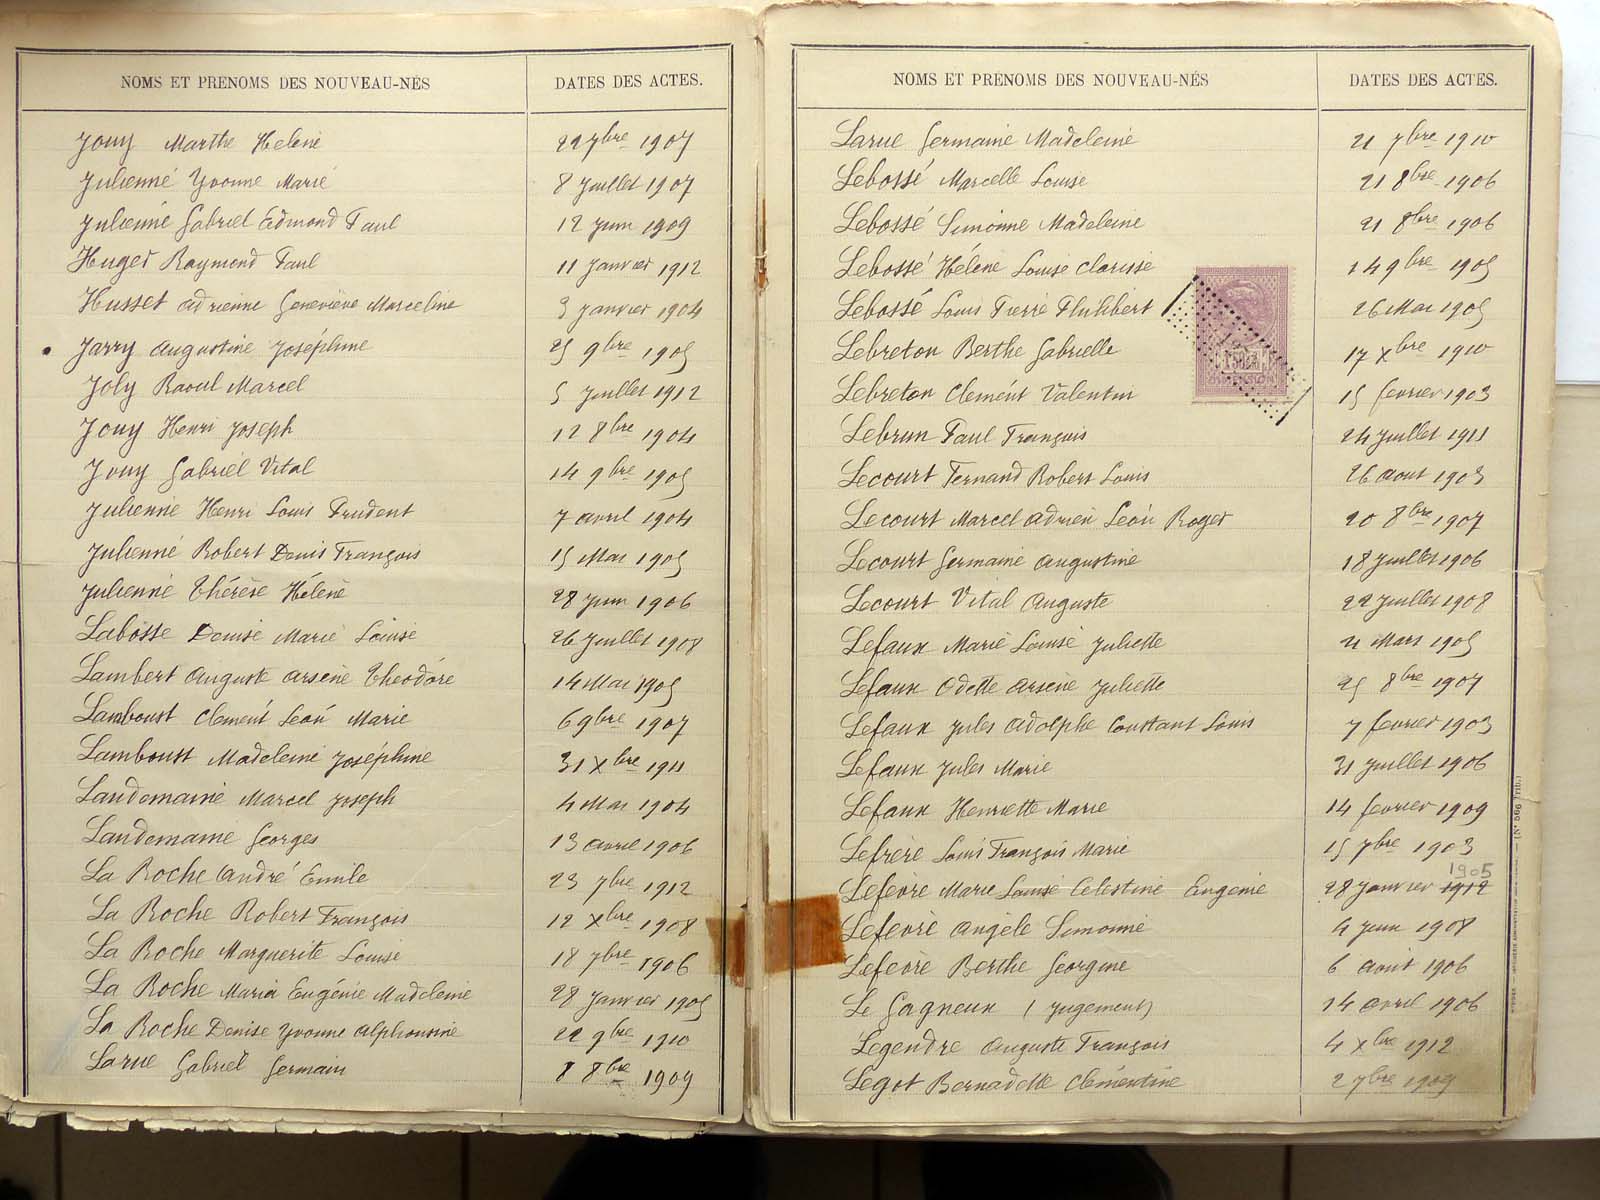 NOMS ET PRÉNOMS DES NOUVEAU-NÉS DATES DES ACTES.
Jouy Marthe Hélène 22 7bre 1907
Julienne Yvonne Marie 8 Juillet 1907
Julienne Gabriel Edmond Paul 12 Juin 1909
Huger Raymond Paul 11 Janvier 1912
Husset Adrienne Geneviève Marceline 3 Janvier 1904
Jarry Augustine Joséphine 25 9bre 1905
Joly Raoul Marcel 5 Juillet 1912
Jouy Henri Joseph 12 8bre 1904
Jouy Gabriel Vital 14 9bre 1905
Julienne Henri Louis Prudent 7 avril 1904
Julienne Robert Denis François 15 Mai 1905
Julienne Thérèse Hélène 28 Juin 1906
Labosse Denise Marie Louise 26 Juillet 1908
Lambert Auguste Arsène Théodore 14 Mai 1905
Lamboust Clément Léon Marie 6 9bre 1907
Lamboust Madeleine Joséphine 31 Xbre 1911
Landemaine Marcel Joseph 4 Mai 1904
Landemaine Georges 13 avril 1906
La Roche André Emile 23 7bre 1912
La Roche Robert François 12 Xbre 1908
La Roche Marguerite Louise 18 7bre 1906
La Roche Maria Eugénie Madeleine 28 Janvier 1905
La Roche Denise Yvonne Alphonsine 22 9bre 1910
Larue Gabriel Germain 8 8bre 1909
NOMS ET PRÉNOMS DES NOUVEAU-NÉS DATES DES ACTES.
Larue Germaine Madeleine 21 7bre 1910
Lebossé Marcelle Louise 21 8bre 1906
Lebossé Simonne Madeleine 21 8bre 1906
Lebossé Hélène Louise Clarisse 14 9bre 1905
Lebossé Louis Pierre Philibert 26 Mai 1905
Lebreton Berthe Gabrielle 17 Xbre 1910
Lebreton Clément Valentin 15 février 1903
Lebrun Paul François 24 Juillet 1911
Lecourt Fernand Robert Louis 26 aout 1903
Lecourt Marcel Adrien Léon Roger 20 8bre 1907
Lecourt Germaine Augustine 18 Juillet 1906
Lecourt Vital Auguste 22 Juillet 1908
Lefaux Marie Louise Juliette 21 Mars 1905
Lefaux Odette Arsène Juliette 25 8bre 1907
Lefaux Jules Adolphe Constant Louis 7 février 1903
Lefaux Jules Marie 31 Juillet 1906
Lefaux Henriette Marie 14 février 1909
Lefrère Louis François Marie 15 7bre 1903
1905
Lefèvre Marie Louise Célestine Eugénie 28 Janvier 1912
Lefèvre Angèle Simonne 4 Juin 1908
Lefèvre Berthe Georgine 6 aout 1906
Le Gagneux (Jugement) 14 avril 1906
Legendre Auguste François 4 Xbre 1912
Legot Bernadette Clémentine 2 7bre 1909